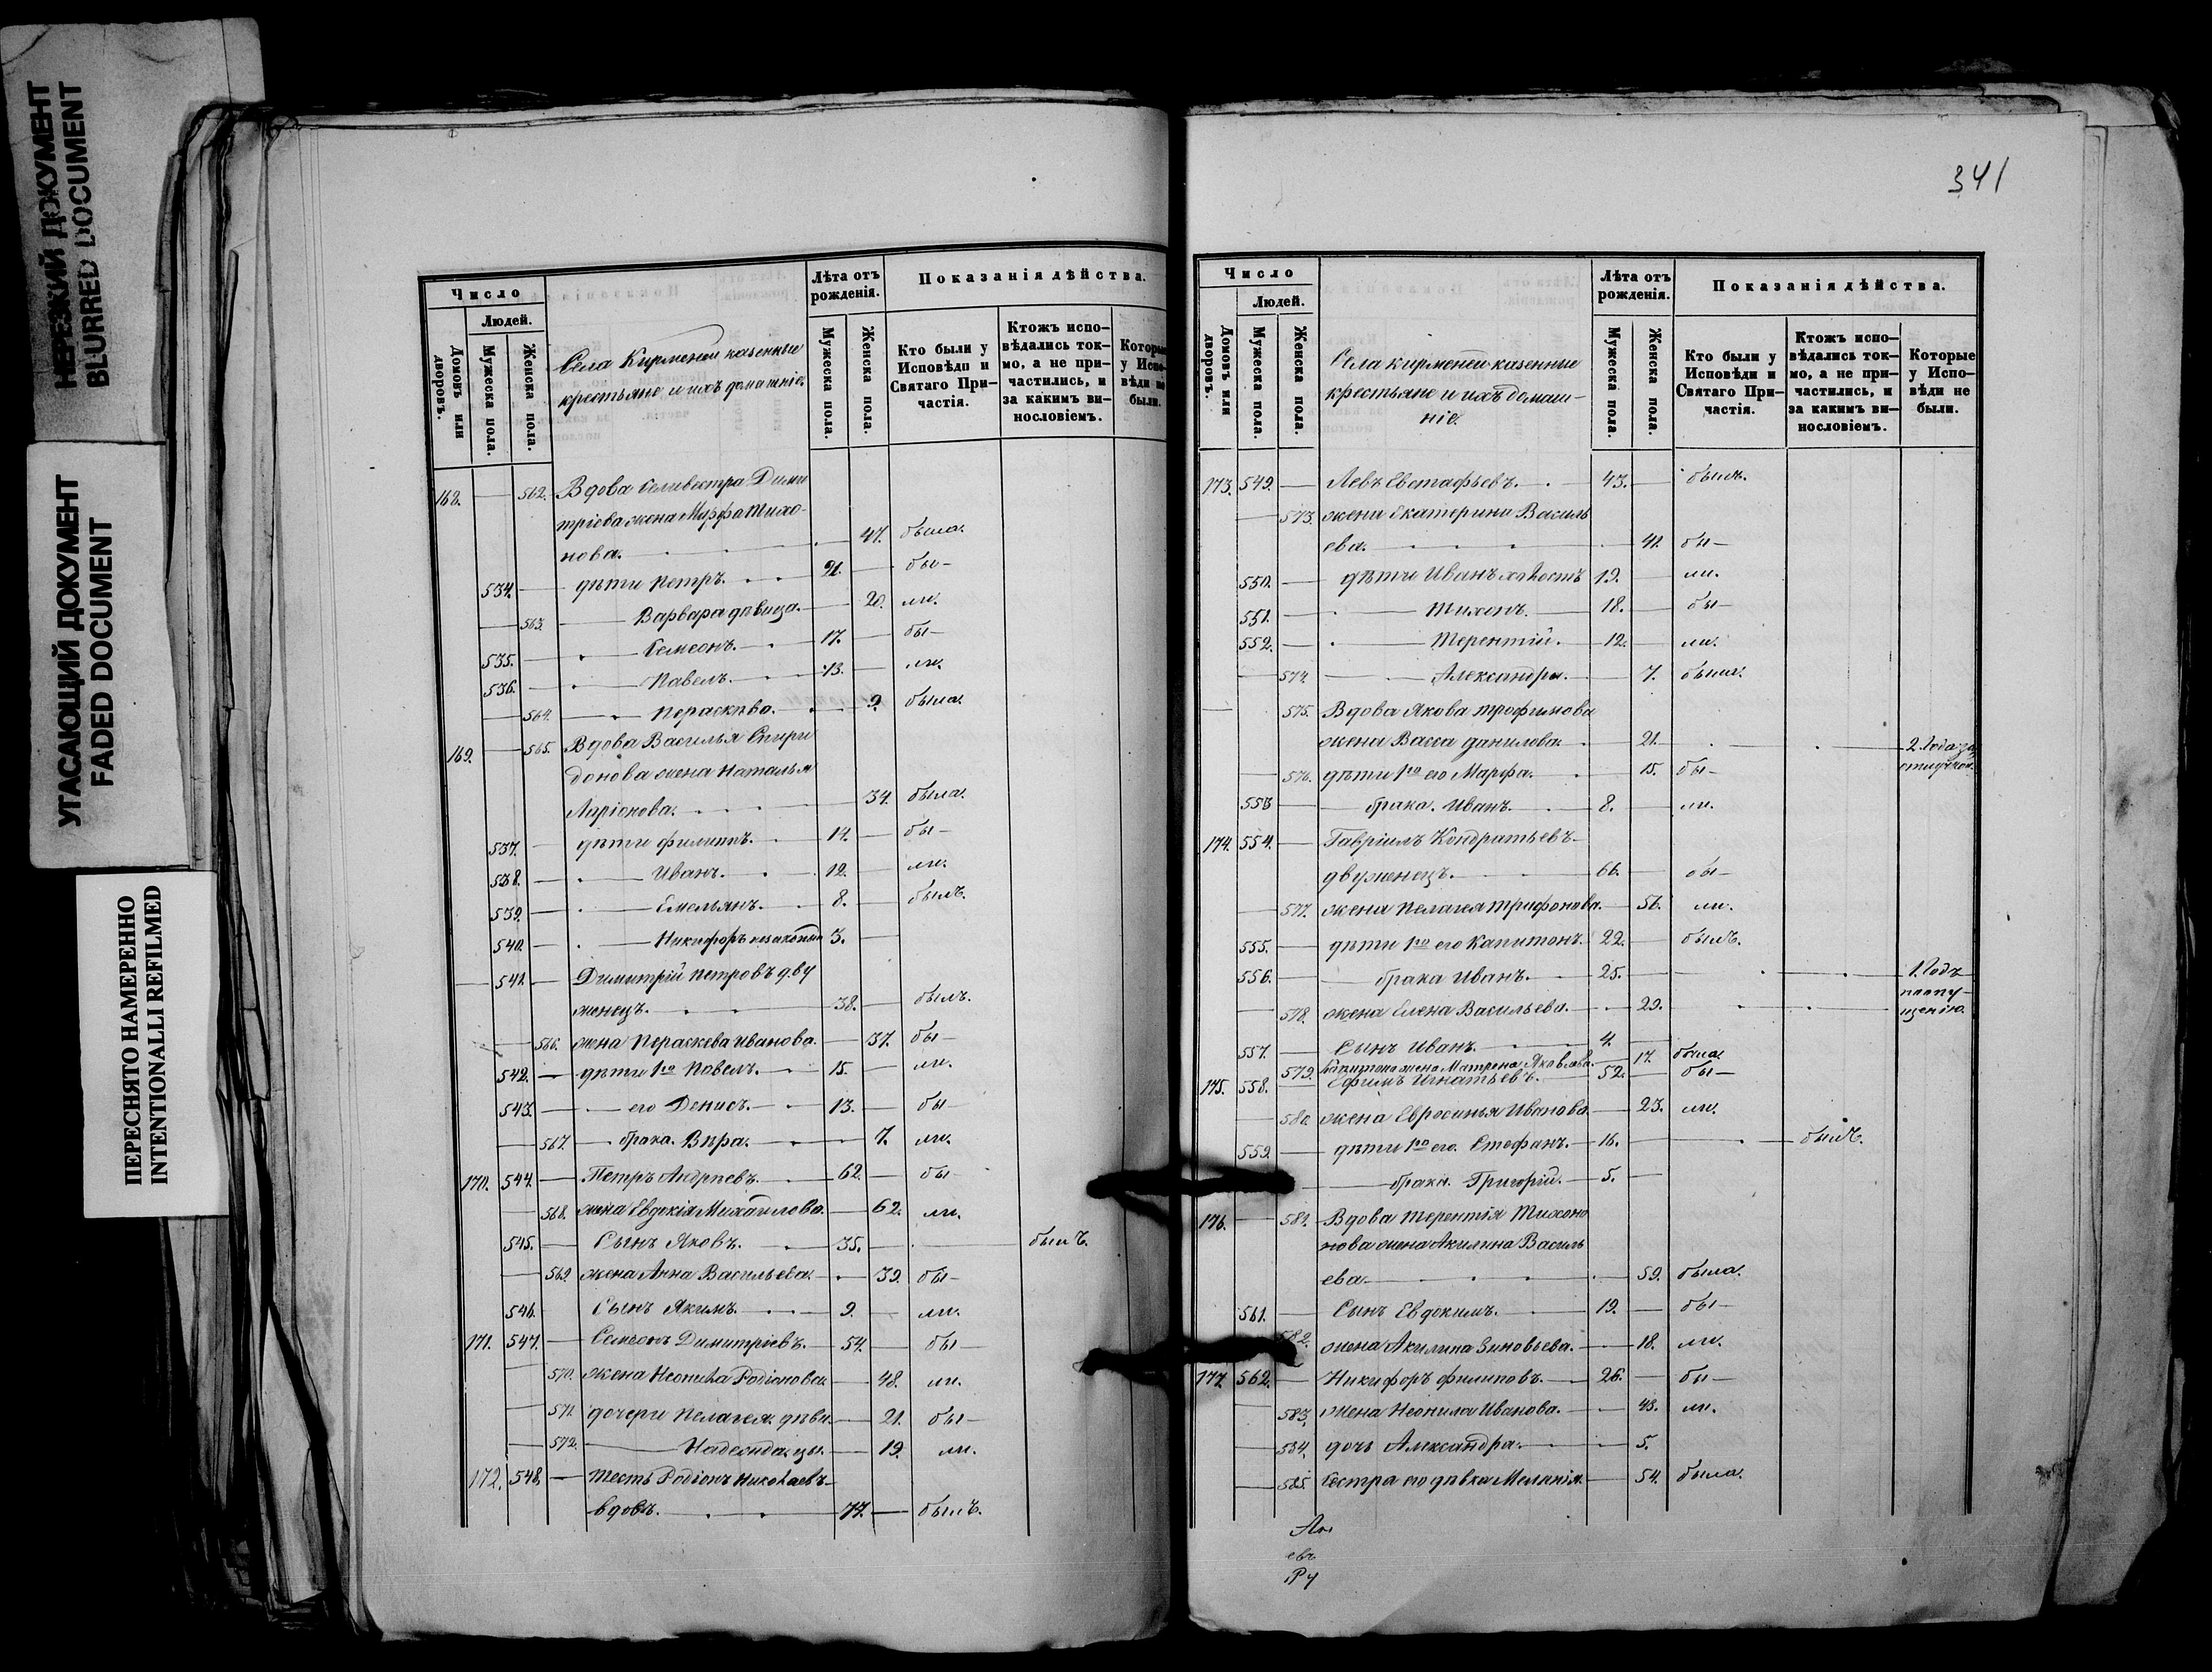 НЕРЕЗКИЙ ДОКУМЕНТ
BLURRED DOCUMENT
УГАСАЮЩИЙ ДОКУМЕНТ
FADED DOCUMENT
ПЕРЕСНЯТО НАМЕРЕННО
INTENTIONALLI REFILMED
Число
Людей.
Домовъ или дворовъ.
Мужеска пола.
Женска пола.
Села Кирменей казенные
крестьяне и ихъ домашніе.
Лѣта отъ рожденія.
Мужеска пола.
Женска пола.
Показанія дѣйства.
Кто были у Исповѣди и Святаго Причастія.
Ктожъ исповѣдались токмо, а не причастились, и за какимъ винословіемъ.
Которые у Исповѣди не были.
168. — 562. Вдова Селивестра Дими
тріева жена Марфа Тихо-
нова. 47. была.
534. — дѣти Петръ. 21. — бы-
— 563. — Варвара дѣвица. — 20. ли.
535. — Семеонъ. 17. — бы-
536. — Павелъ. 13. — ли.
— 564. — Пераскева. 9. была.
169. — 565. Вдова Василья Спири
донова жена Наталья
Ларіонова. 34. была.
537. — дѣти Филиппъ. 14. — бы-
538. — Иванъ. 12. — ли.
539. — Емельянъ. 8. — былъ.
540. — Никифоръ 3. —
— 541. — Димитрій Петровъ дву
женецъ. 38. — былъ.
— 566. жена Пераскева Иванова. — 37. бы-
542. — дѣти 1го Павелъ. 15. — ли.
543. — его Денисъ. — 13. — бы-
— 567. — брака. Вѣра. — 7. ли.
170. 544. — Петръ Андреевъ. 62. — бы
— 568. жена Евдокія Михайлова. — 62. ли.
545. — Сынъ Яковъ. — 35. — былъ.
— 569. жена Анна Васильева. — 39. бы-
546. Сынъ Якимъ. 9. — ли.
171. 547. — Семеонъ Димитріевъ. — 54. — бы-
— 570. жена Неонила Родіонова. — 48. ли.
— 571. дочери Пелагея дѣви- — 21. бы-
— 572. — Надежда цы. — 19. ли.
172. 548. — Тесть Родіонъ Николаевъ-
вдовъ. 77. — былъ.
341
Число
Людей.
Домовъ или дворовъ.
Мужеска пола.
Женска пола.
Села Кирменей казенные
крестьяне и ихъ домаш-
ніе.
Лѣта отъ рожденія.
Мужеска пола.
Женска пола.
Показанія дѣйства.
Кто были у Исповѣди и Святаго Причастія.
Ктожъ исповѣдались токмо, а не причастились, и за какимъ винословіемъ.
Которые у Исповѣди не были.
173. 549. — Левъ Евстафьевъ. 43. — былъ.
— 573. жена Екатерина Василь
ева. 41. бы-
550. — дѣти Иванъ холостъ 19. — ли.
551. — Тихонъ. — 18. — бы-
552. — Терентій. 12. — ли.
— 574. — Александра. — 7. была.
— 575. Вдова Якова Трофимова
жена Васса Данилова. 21. 2. года за
отлучкой.
— 576. дѣти 1го его Марфа. 15. бы-
553 — брака. Иванъ. 8. — ли.
174. 554. — Гавріилъ Кондратьевъ-
двуженецъ. 66. — бы-
— 577. жена Пелагея Трифонова. — 56. ли.
555. — дѣти 1го его Капитонъ. 22. — былъ.
556. — брака Иванъ. — 25. — 1. годъ
по опу-
щенію.
— 578. жена Елена Васильева. — 29.
557. — Сынъ Иванъ. 4. —
579. Капитона жена Матрена Яковлева. — 17. была.
175. 558. — Ефимъ Игнатьевъ. — 52. — бы-
— 580. жена Евросинья Иванова. — 23. ли.
559. — дѣти 1го его. Стефанъ. — 16. — былъ.
— брака. Григорій. — 5. —
176. — 581. Вдова Терентія Тихоно
нова жена Акилина Василь
ева. — 59. была.
561. — Сынъ Евдокимъ. — 19. — бы-
582. жена Акилина Зиновьева. — 18. ли.
177. 562. — Никифоръ Филиповъ. — 26. — бы-
— 583. жена Неонила Иванова. 43. ли.
— 584. дочь Александра. — 5.
— 585. Сестра его дѣвка Меланія. — 54. была.